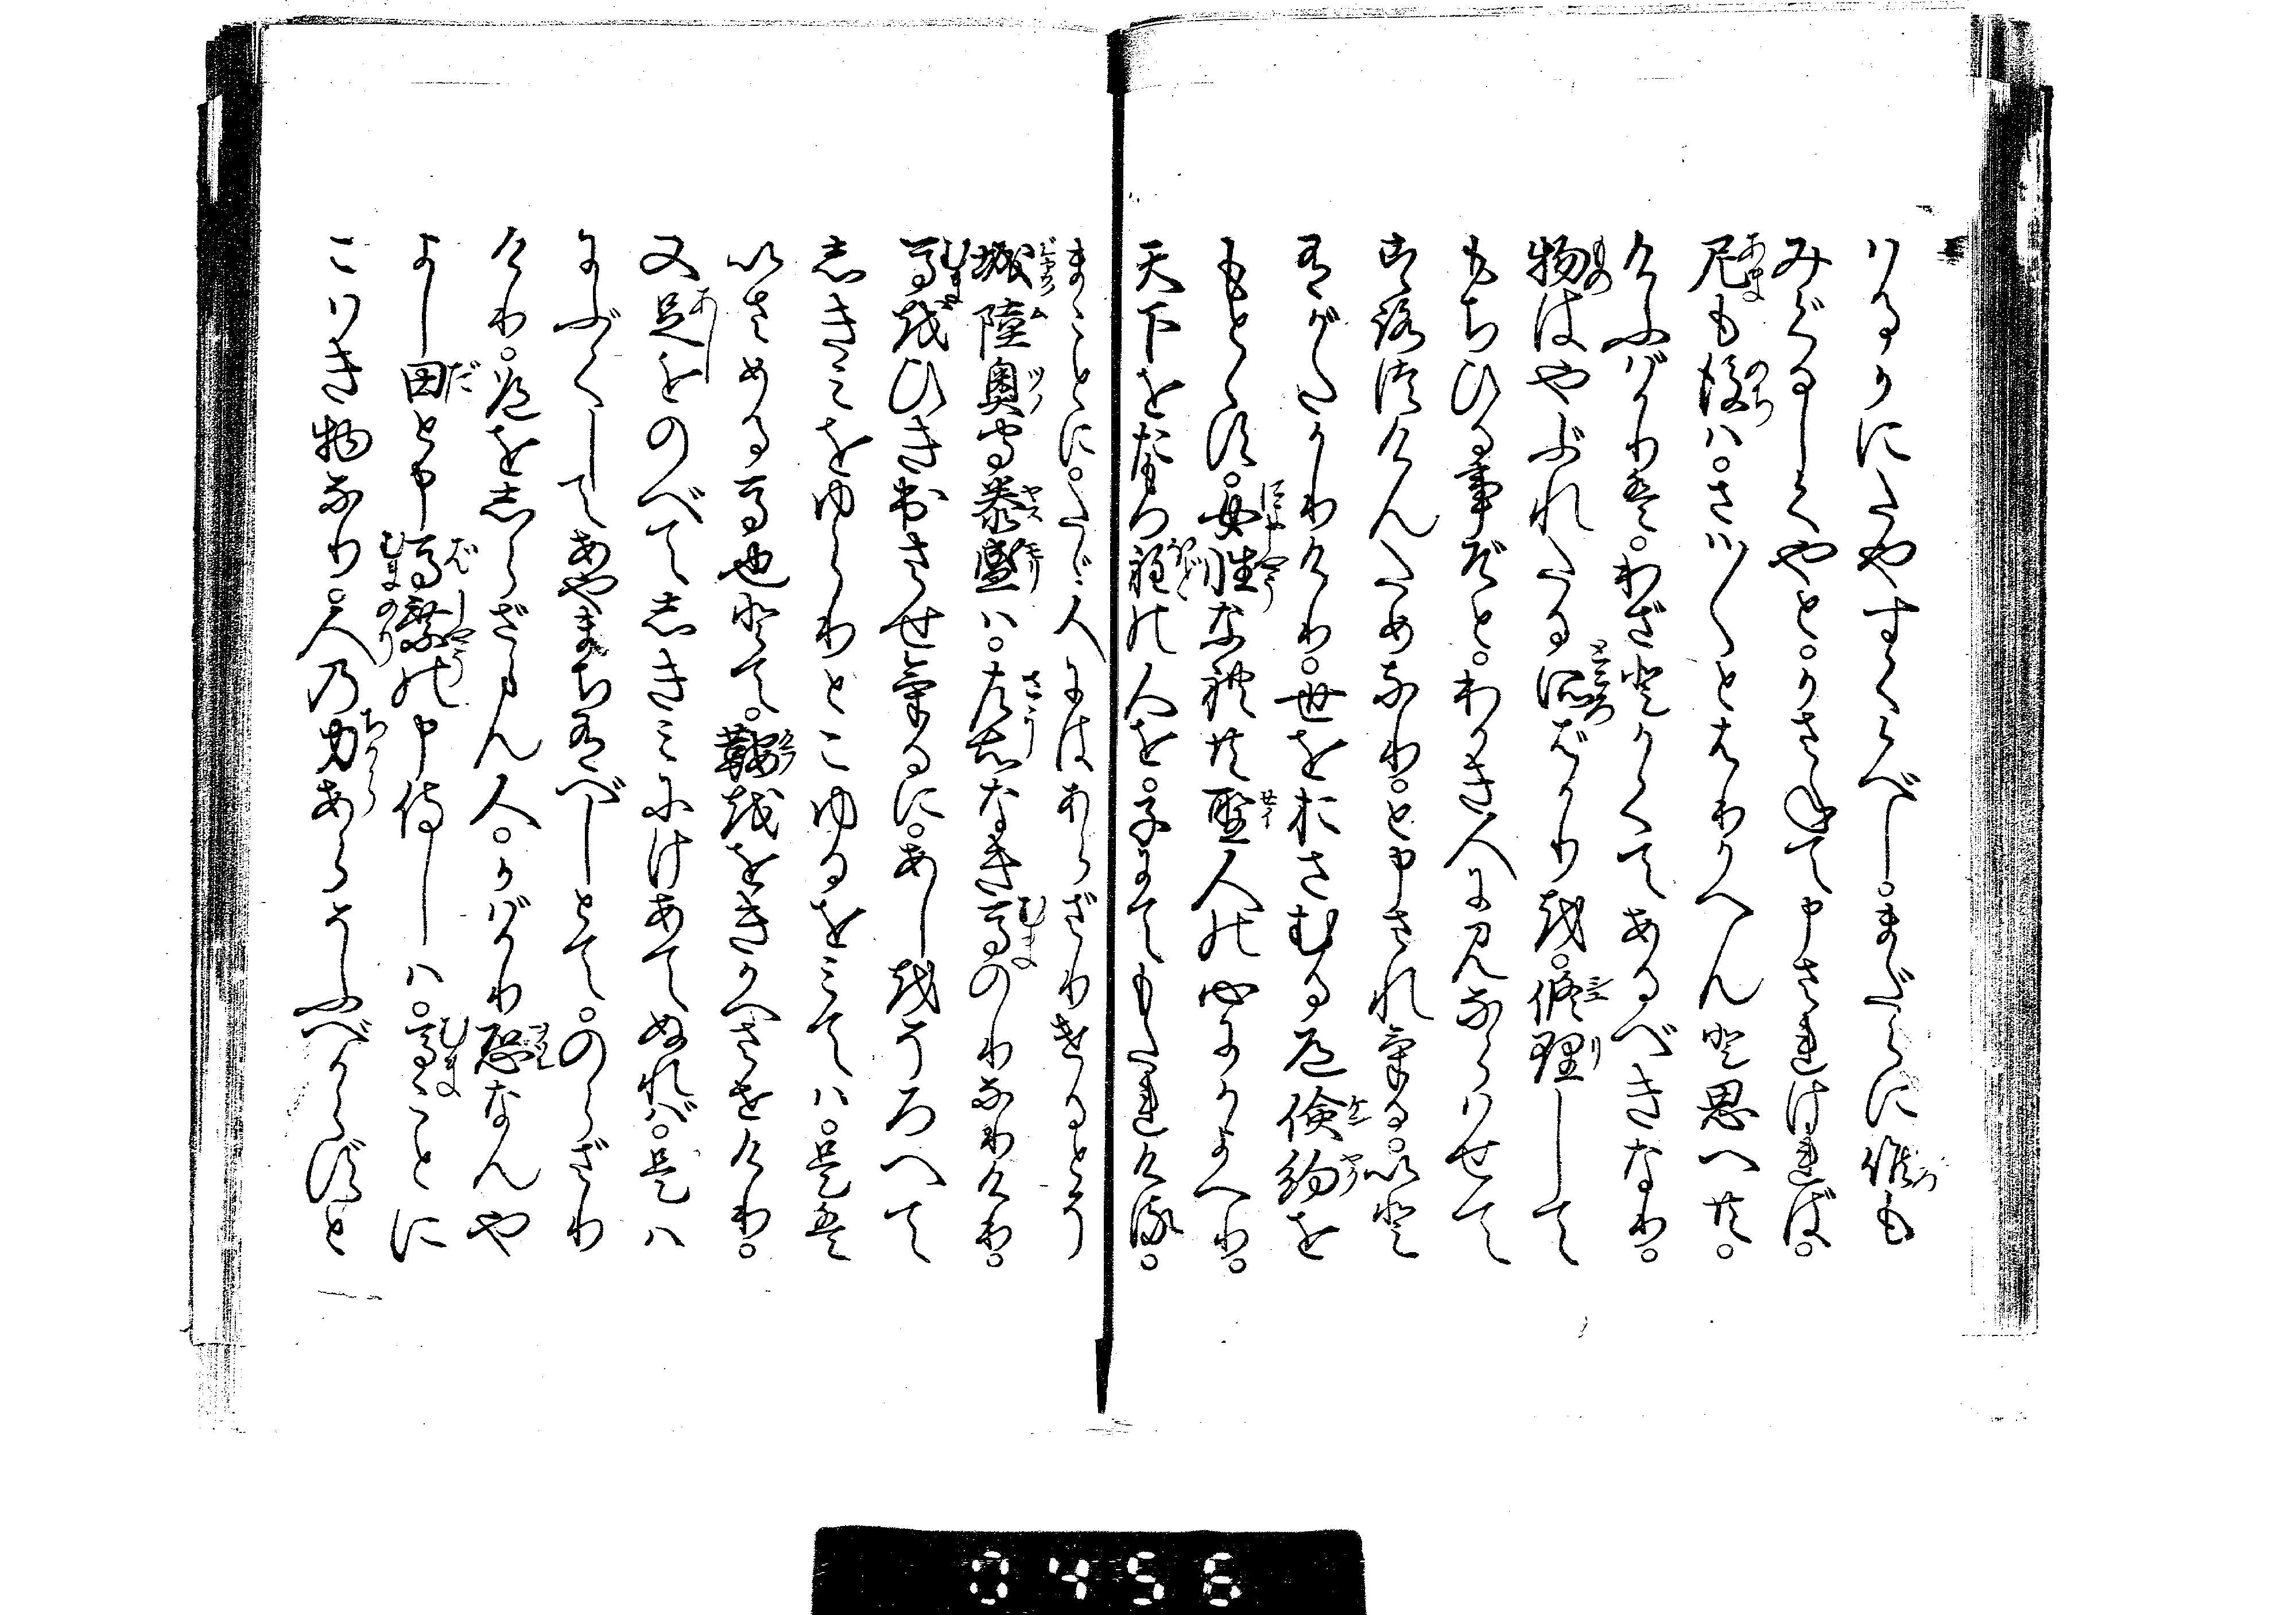 けるかにたやすくくべし。まだらに候も
みぐるしくやと。かさねて申されければ。
尼も後ハ。さハ〳〵とはりかへんと思へ共。
けふばかりは。わざとかくてあるべきなり。
物はやぶれたる所ばかりを。修理して
もちひる事ぞと。わかき人に見ならはせて
心つけんためなり。と申されける。いと
有がたかりけり。世をおさむる道倹約を
もとゝす。女性なれ共聖人の心にかよへり。
天下をたもつ程の人を。子にてもたれける。
まことに。たゞ人にはあらざりけるとぞ
城陸奥守泰盛ハ。左右なき馬のりなりけり。
馬をひき出させけるに。あしをそろへて
しきみをゆらりとこゆるをみてハ。是は
いさめる馬也とて。鞍をおきかへさせけり。
又足をのべてしきみにけあてぬれば。是ハ
にぶくしてあやまち有べしとて。のらざり
けり。道をしらざらん人。かばかり恐なんや
よし田と申馬乗の申侍しハ。馬ことに
こハき物なり。人の力あらそふべからずと
0456